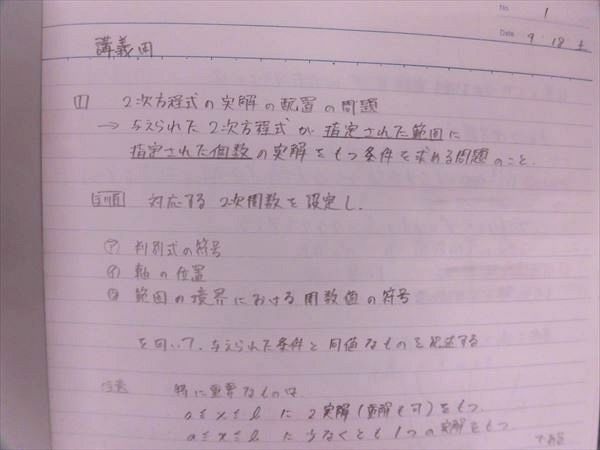 No. 1
Date 9・18 土
講義用
① 2次方程式の実解の配置の問題
→ 与えられた2次方程式が指定された範囲に
指定された個数の実解をもつ条件を求める問題のこと.
手順 対応する2次関数を設定し.
㋐ 判別式の符号
㋑ 軸の位置
㋒ 範囲の境界における関数値の符号
を用いて、与えられた条件と同値なものを記述する
注意 特に重要なものは.
a≦x≦b に 2実解(重解も可)をもつ.
a≦x≦b に少なくとも1つの実解をもつ.